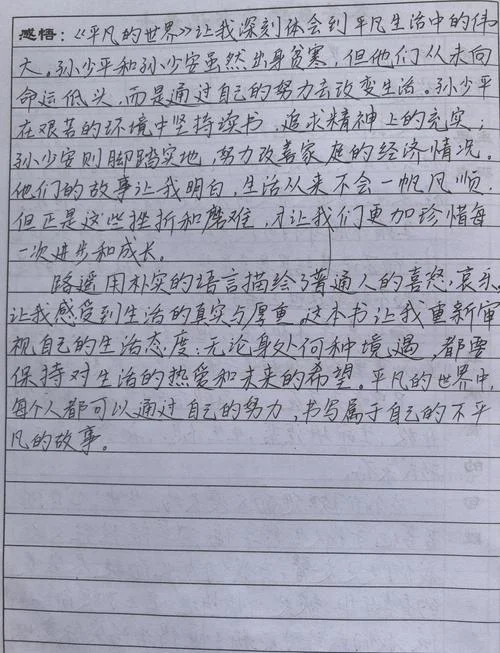 感悟：《平凡的世界》让我深刻体会到平凡生活中的伟
大。孙少平和孙少安虽然出身贫寒，但他们从未向
命运低头，而是通过自己的努力去改变生活。孙少平
在艰苦的环境中坚持读书，追求精神上的充实；
孙少安则脚踏实地，努力改善家庭的经济情况。
他们的故事让我明白，生活从来不会一帆风顺，
但正是这些挫折和磨难，才让我们更加珍惜每
一次进步和成长。
路遥用朴实的语言描绘了普通人的喜怒哀乐，
让我感受到生活的真实与厚重。这本书让我重新审
视自己的生活态度：无论身处何种境遇，都要
保持对生活的热爱和未来的希望。平凡的世界中，
每个人都可以通过自己的努力，书写属于自己的不平
凡的故事。